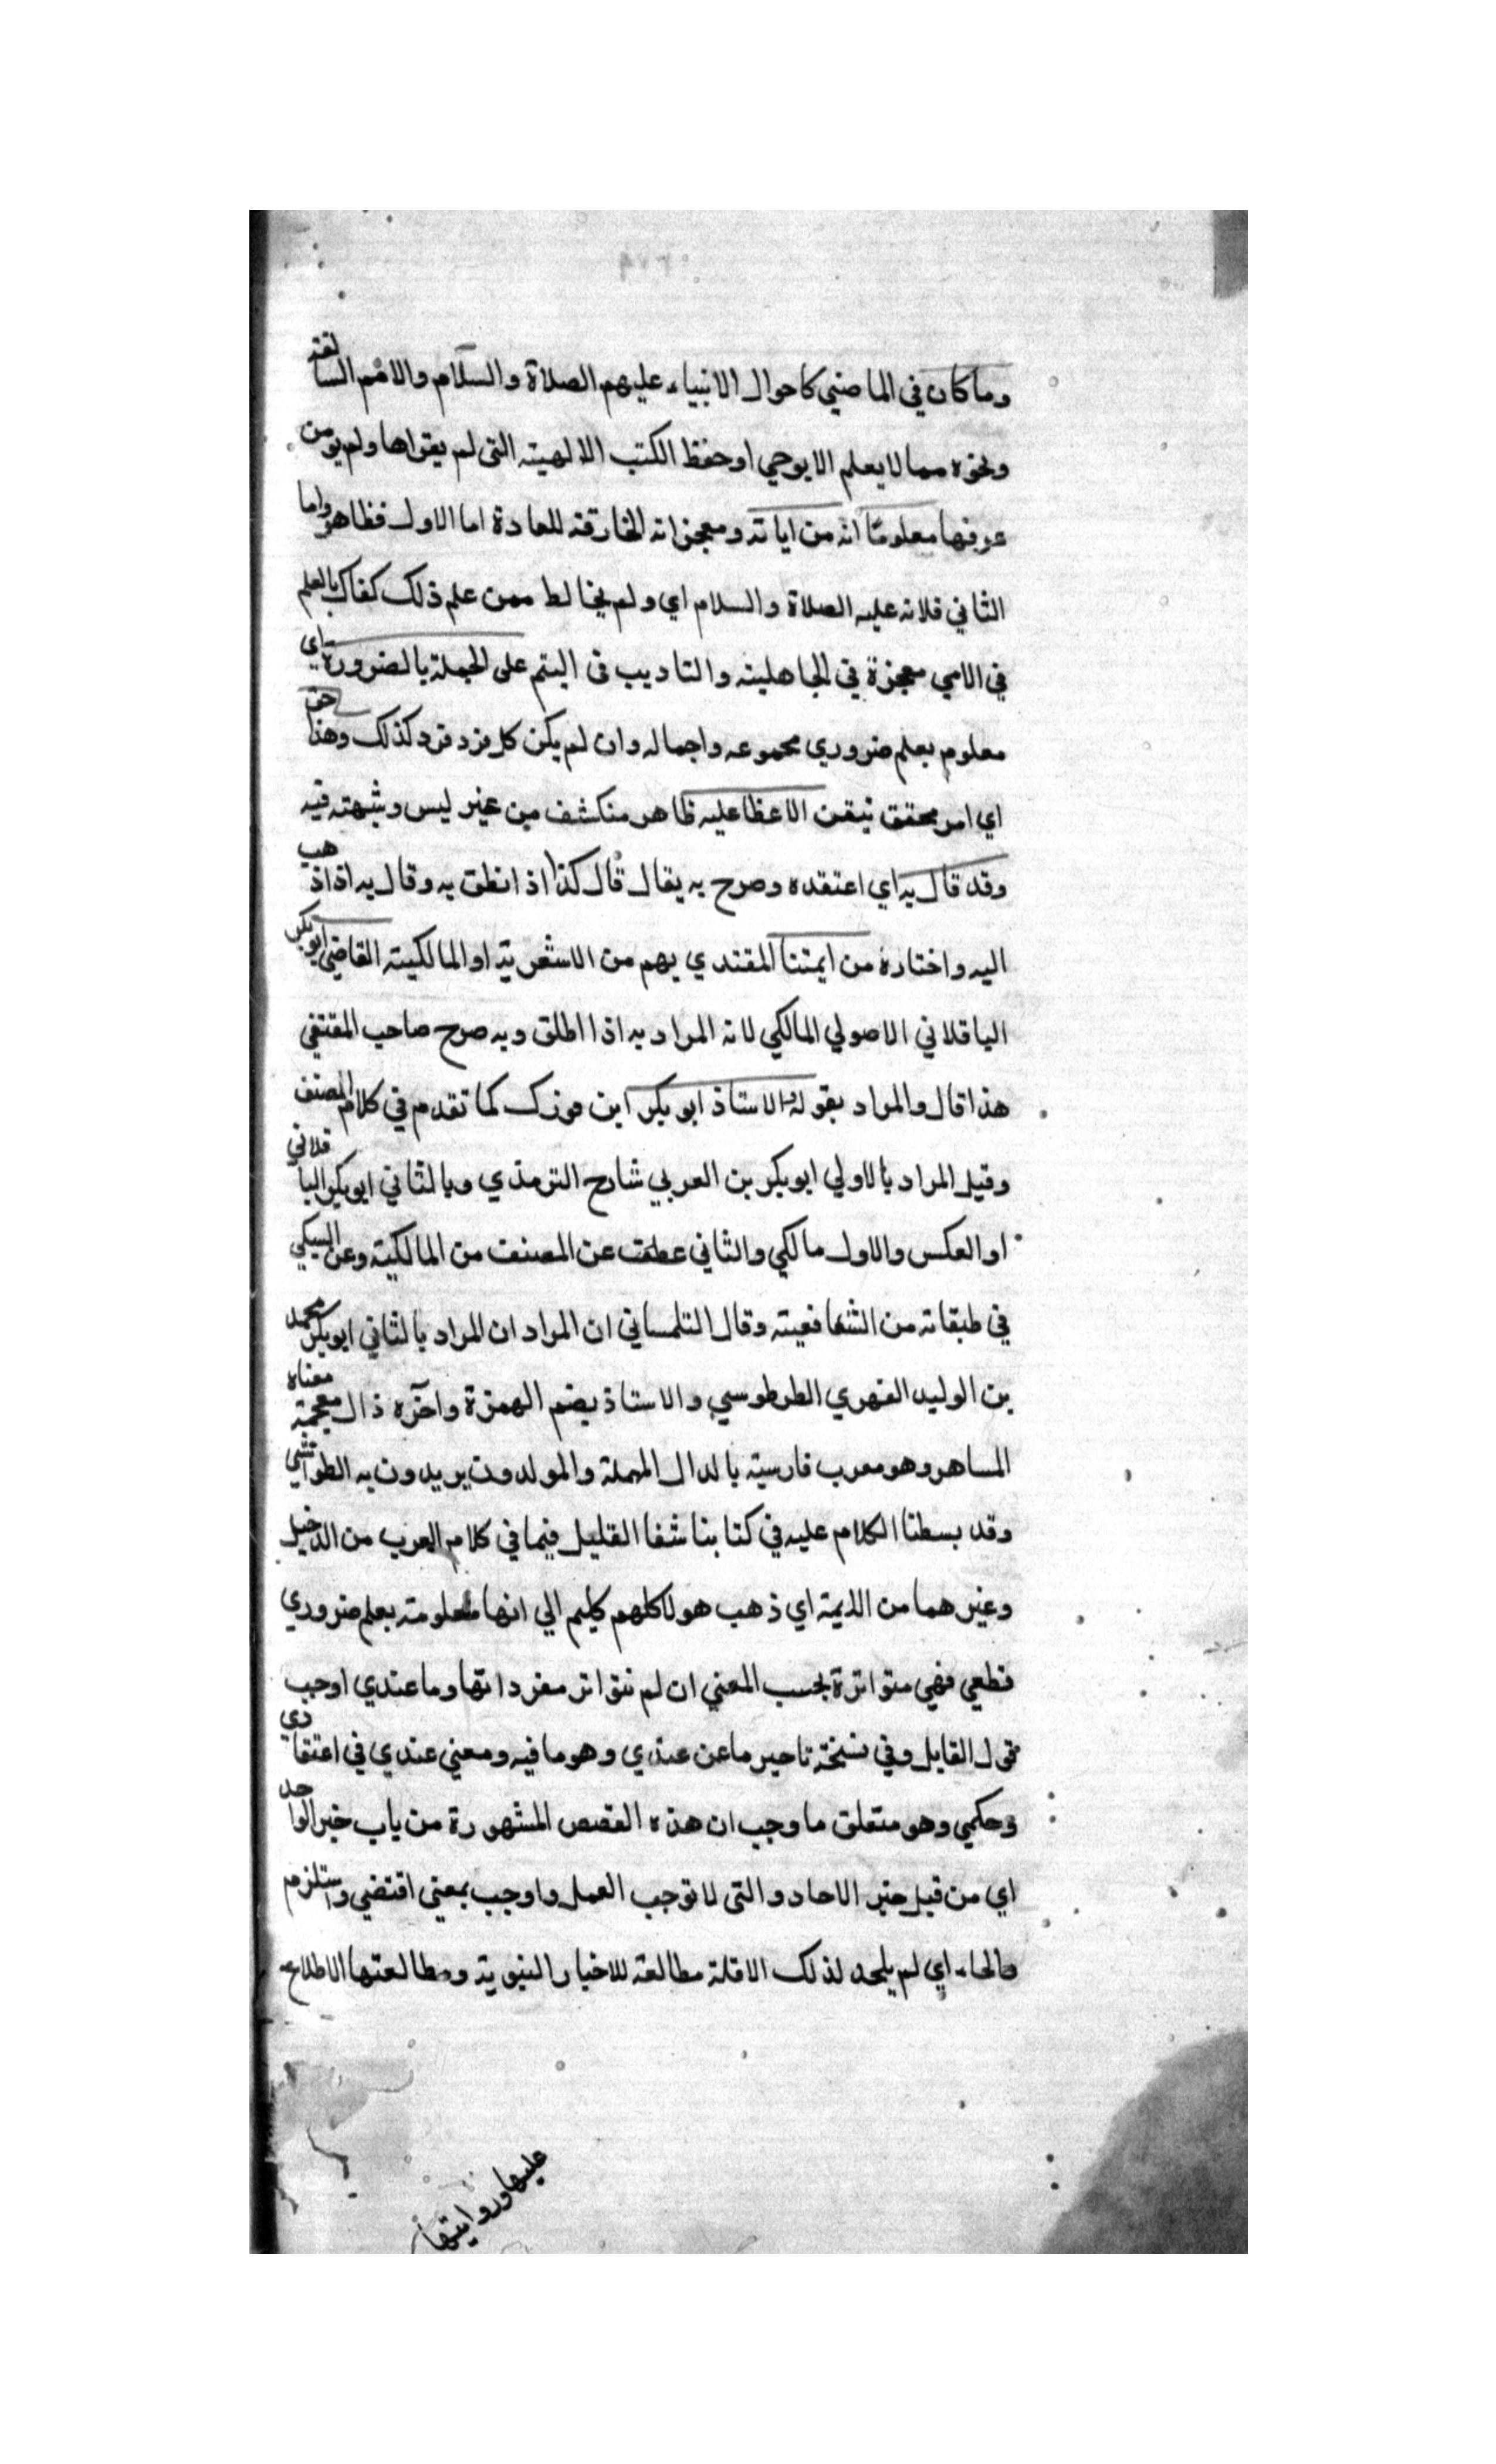 وما كان في الماضي كاحوال الانبياء عليهم الصلاة والسلام والامم السالفة
ونحوه مما لا يعلم الا بوحي او حفظ الكتب الالهية التي لم يقراها ولم يومن
عرفها معلوما انه من اياته ومعجزاته الخارقة للعادة اما الاول فظاهر واما
الثاني فلانه عليه الصلاة والسلام اي ولم يخالط ممن علم ذلك كفاك بالعلم
في الامي معجزة في الجاهلية والتاديب في اليتم على الجملة بالضرورة اي
معلوم بعلم ضروري مجموعه واجماله وان لم يكن كل فرد فرد كذلك وهذا حق
اي امر محقق تيقن الاعظا عليه ظاهر منكشف من غير ليس وشبهة فيه
وقد قال به اي اعتقده وصرح به يقال قال كذا اذا نطق به وقال به اذا ذهب
اليه واختاره من ايمتنا المقتدي بهم من الاشعرية او المالكية القاضي ابو بكر
الباقلاني الاصولي المالكي لانه المراد به اذا اطلق وبه صرح صاحب المقتفي
هذا قال والمراد بقوله والاستاذ ابو بكر ابن فورك كما تقدم في كلام المصنف
وقيل المراد بالاولي ابو بكر بن العربي شارح الترمذي وبالثاني ابو بكر الباقلاني
او العكس والاول مالكي والثاني عطف عن المصنف من المالكية وعن السبكي
في طبقاته من الشافعية وقال التلمساني ان المراد ان المراد بالثاني ابو بكر محمد
بن الوليد الفهري الطرطوسي والاستاذ بضم الهمزة واخره ذال معجمة معناه
المساهر وهو معرب فارسية بالدال المهملة والمولدون يريدون به الطواشي
وقد بسطنا الكلام عليه في كتابنا شفا القليل فيما في كلام العرب من الدخيل
وغيرهما من الايمة اي ذهب هولا كلهم الي انها معلومة بعلم ضروري
قطعي فهي متواترة بحسب المعني ان لم تتواتر مفرداتها وما عندي اوجب
قول القايل وفي نسخة تاخير ما عن عندي وهو ما فيه ومعني عندي في اعتقادي
وحكمي وهو متعلق ما وجب ان هذه القصص المشهورة من باب خبر الواحد
اي من قبيل خبر الاحاد والتي لا توجب العمل واوجب بمعني اقتضي واستلزم
والحاء اي لم يلحد لذلك الا قلة مطالعة للاخبار النبوية ومطالعتها الاطلاع
عليها وروايتها